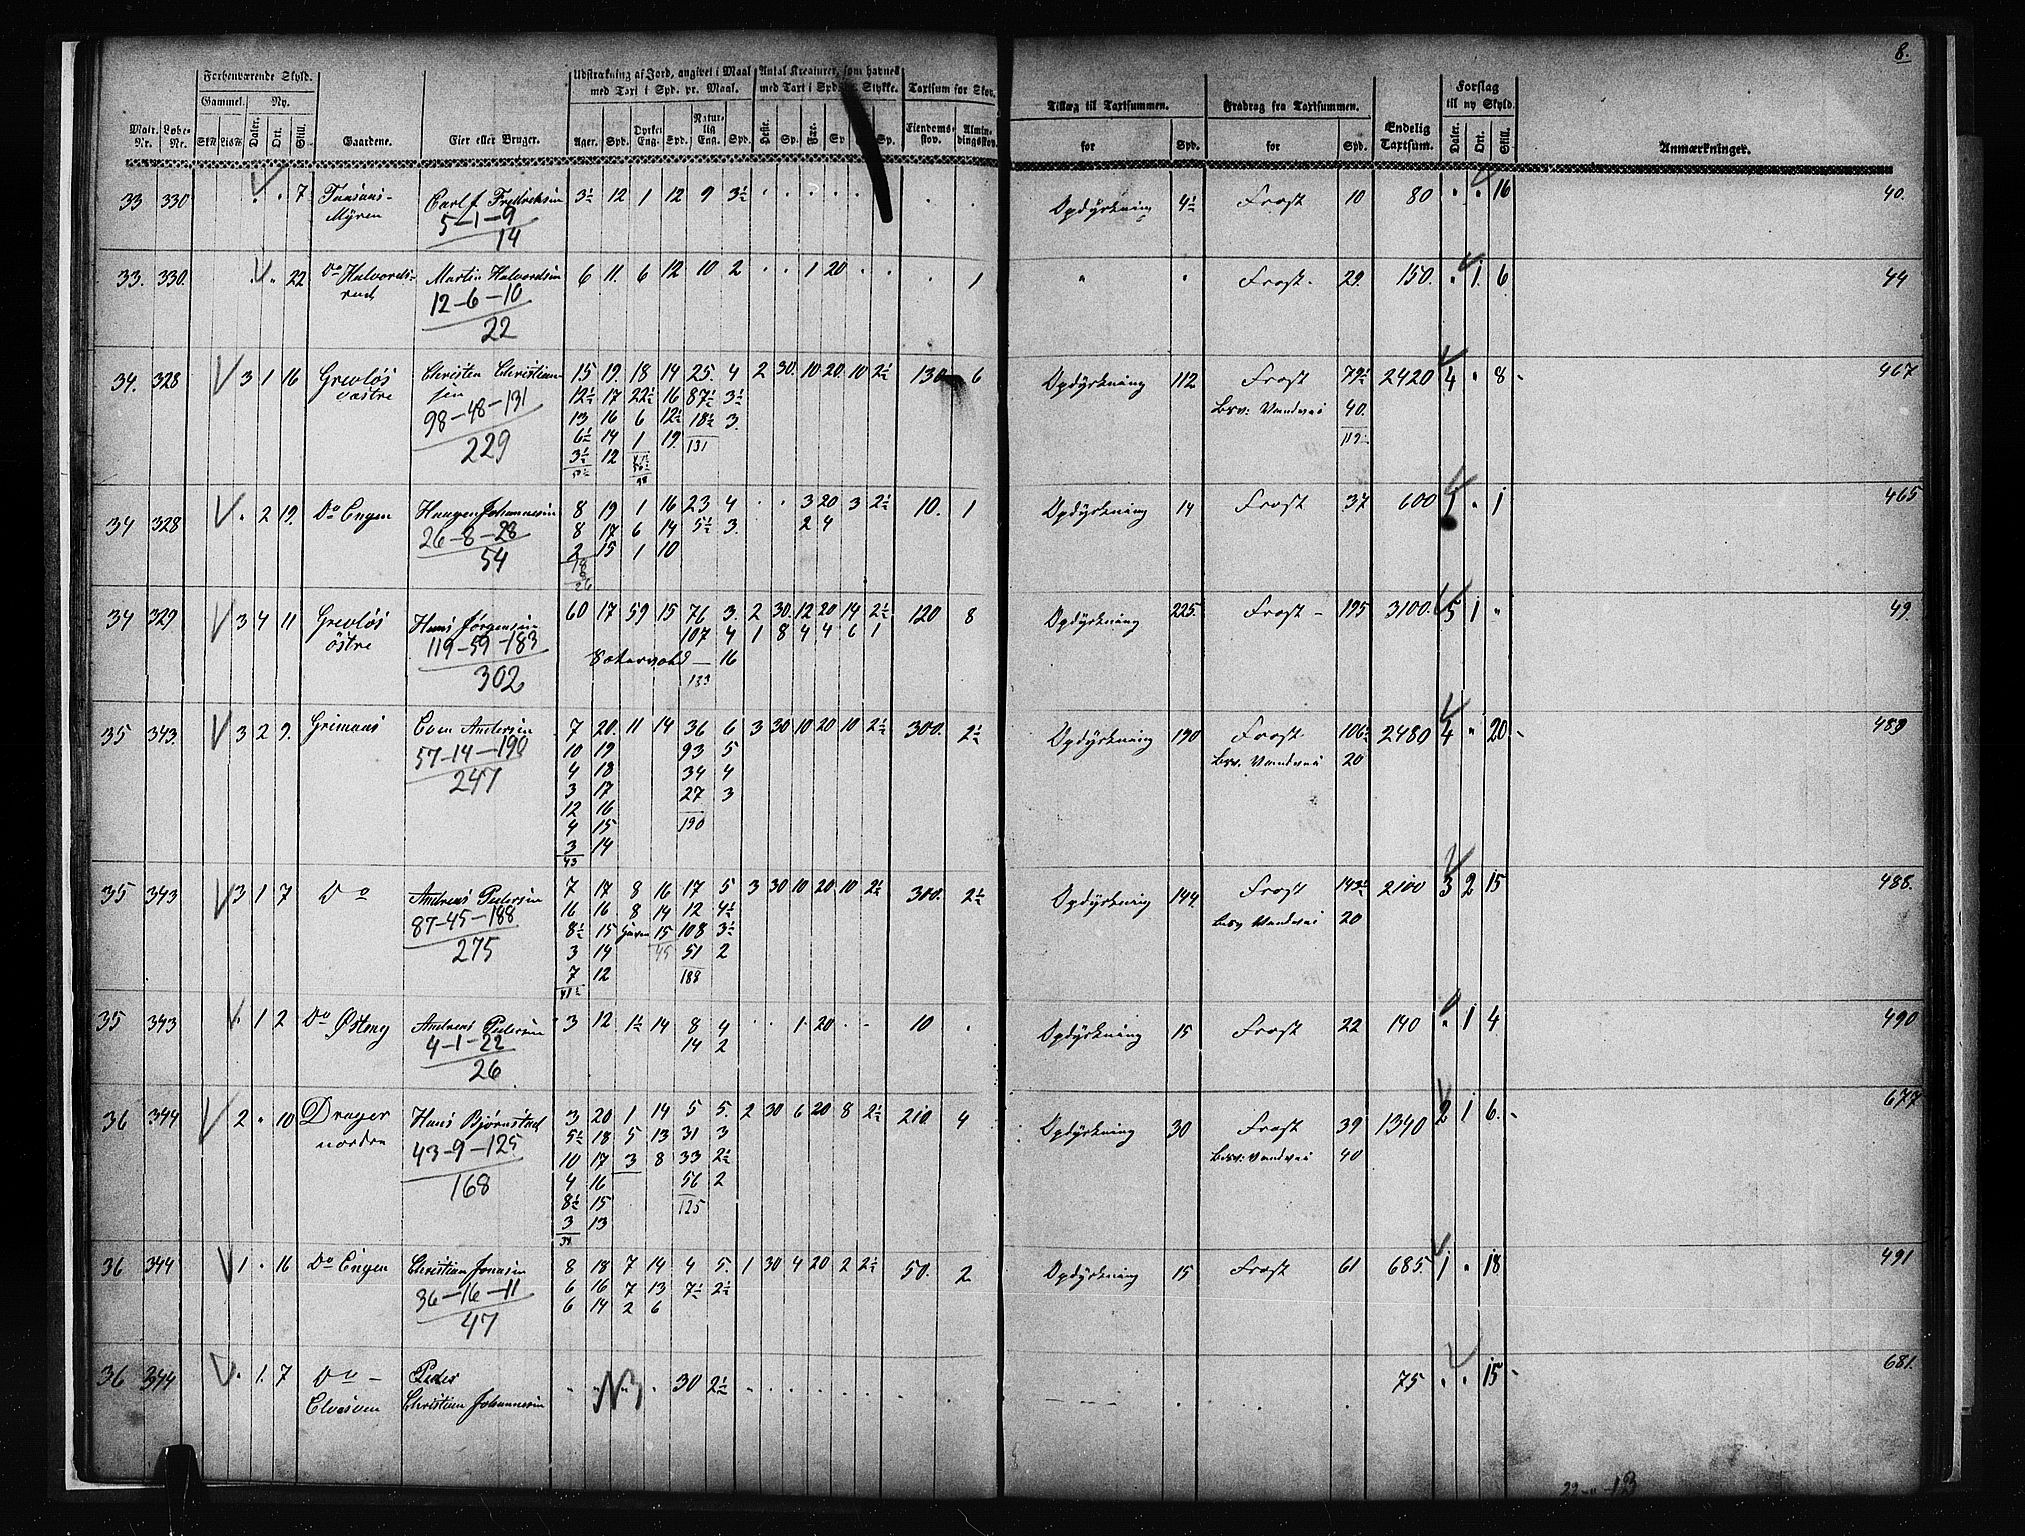 8.
Forhenværende Skyld. Udstrækning af Jord, angivet i Maal med Taxt i Spd. pr. Maal. Antal Kreaturer, som havnes med Taxt i Spd. pr. Stykke. Taxtsum for Skov. Tillæg til Taxtsummen. Fradrag fra Taxtsummen. Forslag til ny Skyld.
Gammel. Ny.
Matr. Nr. Løbe-Nr. Skll. Daler. Ort. Skill. Gaardene. Eier eller Bruger. Ager. Spd. Dyrket Eng. Spd. Naturlig Eng. Spd. Heste. Sp. Sp. Sp. Eiendomsskov. Almindingsskov. for Spd. for Spd. Endelig Taxtsum. Daler. Ort. Skill. Anmærkninger.
33 330 . " 7 Carl F Fredriksen 3½ 12 1 12 9 3½ Opdyrkning 4½ Frost 10 80 " " 16 40.
Myren 5-1-9
14
33. 330. " " 22 Do Halvords- Martin Halvordsen 6 11 6 12 10 2 . . 1 20 . . . 1 " " Frost 29. 150. " 1. 6 44
rud 12-6-10
22
34. 328 3 1 16 Grevløs Christen Christian- 15 19. 18 14 25. 4 2 30. 10 20. 10 2½ 130 6 Opdyrkning 112 Frost 79½ 2420 4 " 8 467
vestre sen 12½ 17 22½ 16 87½ 3½ Besv: Vandvei 40.
98-48-131 13 16 6 12½ 18½ 3. 119
6½ 14 1 19. 131
229 3½ 12
34 328 " 2 19. Do Engen Haagen Johannesen 8 19 1 16 23 4 . . 3 20 3 2½ 10. 1 Opdyrkning 14 Frost 37 600 1 " 1 465
26-8-28 8 17 6 14 5½ 3. 2 4
54 2 15 1 10
18
26
34 329 3 4 11 Grevløs Hans Jørgensen 60 17 59 15 76 3. 2 30. 12 20 14 2½ 120 8 Opdyrkning 225. Frost 195 3100 5 1 " 49.
østre 119-59-183 107 4 1 8 4 4 6 1
302 16
183
35 343. 3 2 9. Grimaas Even Andersen 7 20. 11 14 36 6 3 30 10 20 10 2½ 300. 2½ Opdyrkning 190 Frost 106½ 2480 4 " 20 489
57-14-190 10 19 93 5 Besv. Vandvei 20
247 4 18 34 4
3 17 27 3
12 16
4 15 190
3 14
43
35 343 3 1 7 Do Andreas Pedersen 7 17 8 16 17 5 3 30 10 20 10 2½ 300. 2½ Opdyrkning 144. Frost 143½ 2100 3 2 15 488.
87-45-188 16 16 8 14 12 4½ Besv Vandvei 20
8½ 15 15 108 3½
275 3 14 45 51 2
7 12 188
41½
35 343 " 1 2 Do Østeng Andreas Pedersen 3 12 1½ 14 8 4 . . 1 20 . . 10 . Opdyrkning 15 Frost 22 140 " 1 4 490
4-1-22 14 2
26
36 344 2 " 10 Drager Hans Bjørnstad 3 20 1 14 5 5. 2 30 6 20 8 2½ 210. 4 Opdyrkning 30 Frost 39 1340 2 1 6. 677
nordre 5½ 18 5 13 31 3
43-9-125 10 17 3 8 33 2½ Besv: Vandvei 40
4 16 56 2
168 8½ 15 125
3 13
34
36 344 1 " 16 Do Engen Christian Jonasen 8 18 7 14 4 5. 1 30 4 20 2 2½ 50. 2 Opdyrkning 15 Frost 61 685. 1 " 18 491
36-16-11 6 16 7 13 7½ 2½
47 6 14 2 6
36 344 " 1. 7 Do - Peder " " " " 30 2½ 75 " " 15 681.
Christian Johannesen NB
22-"-13